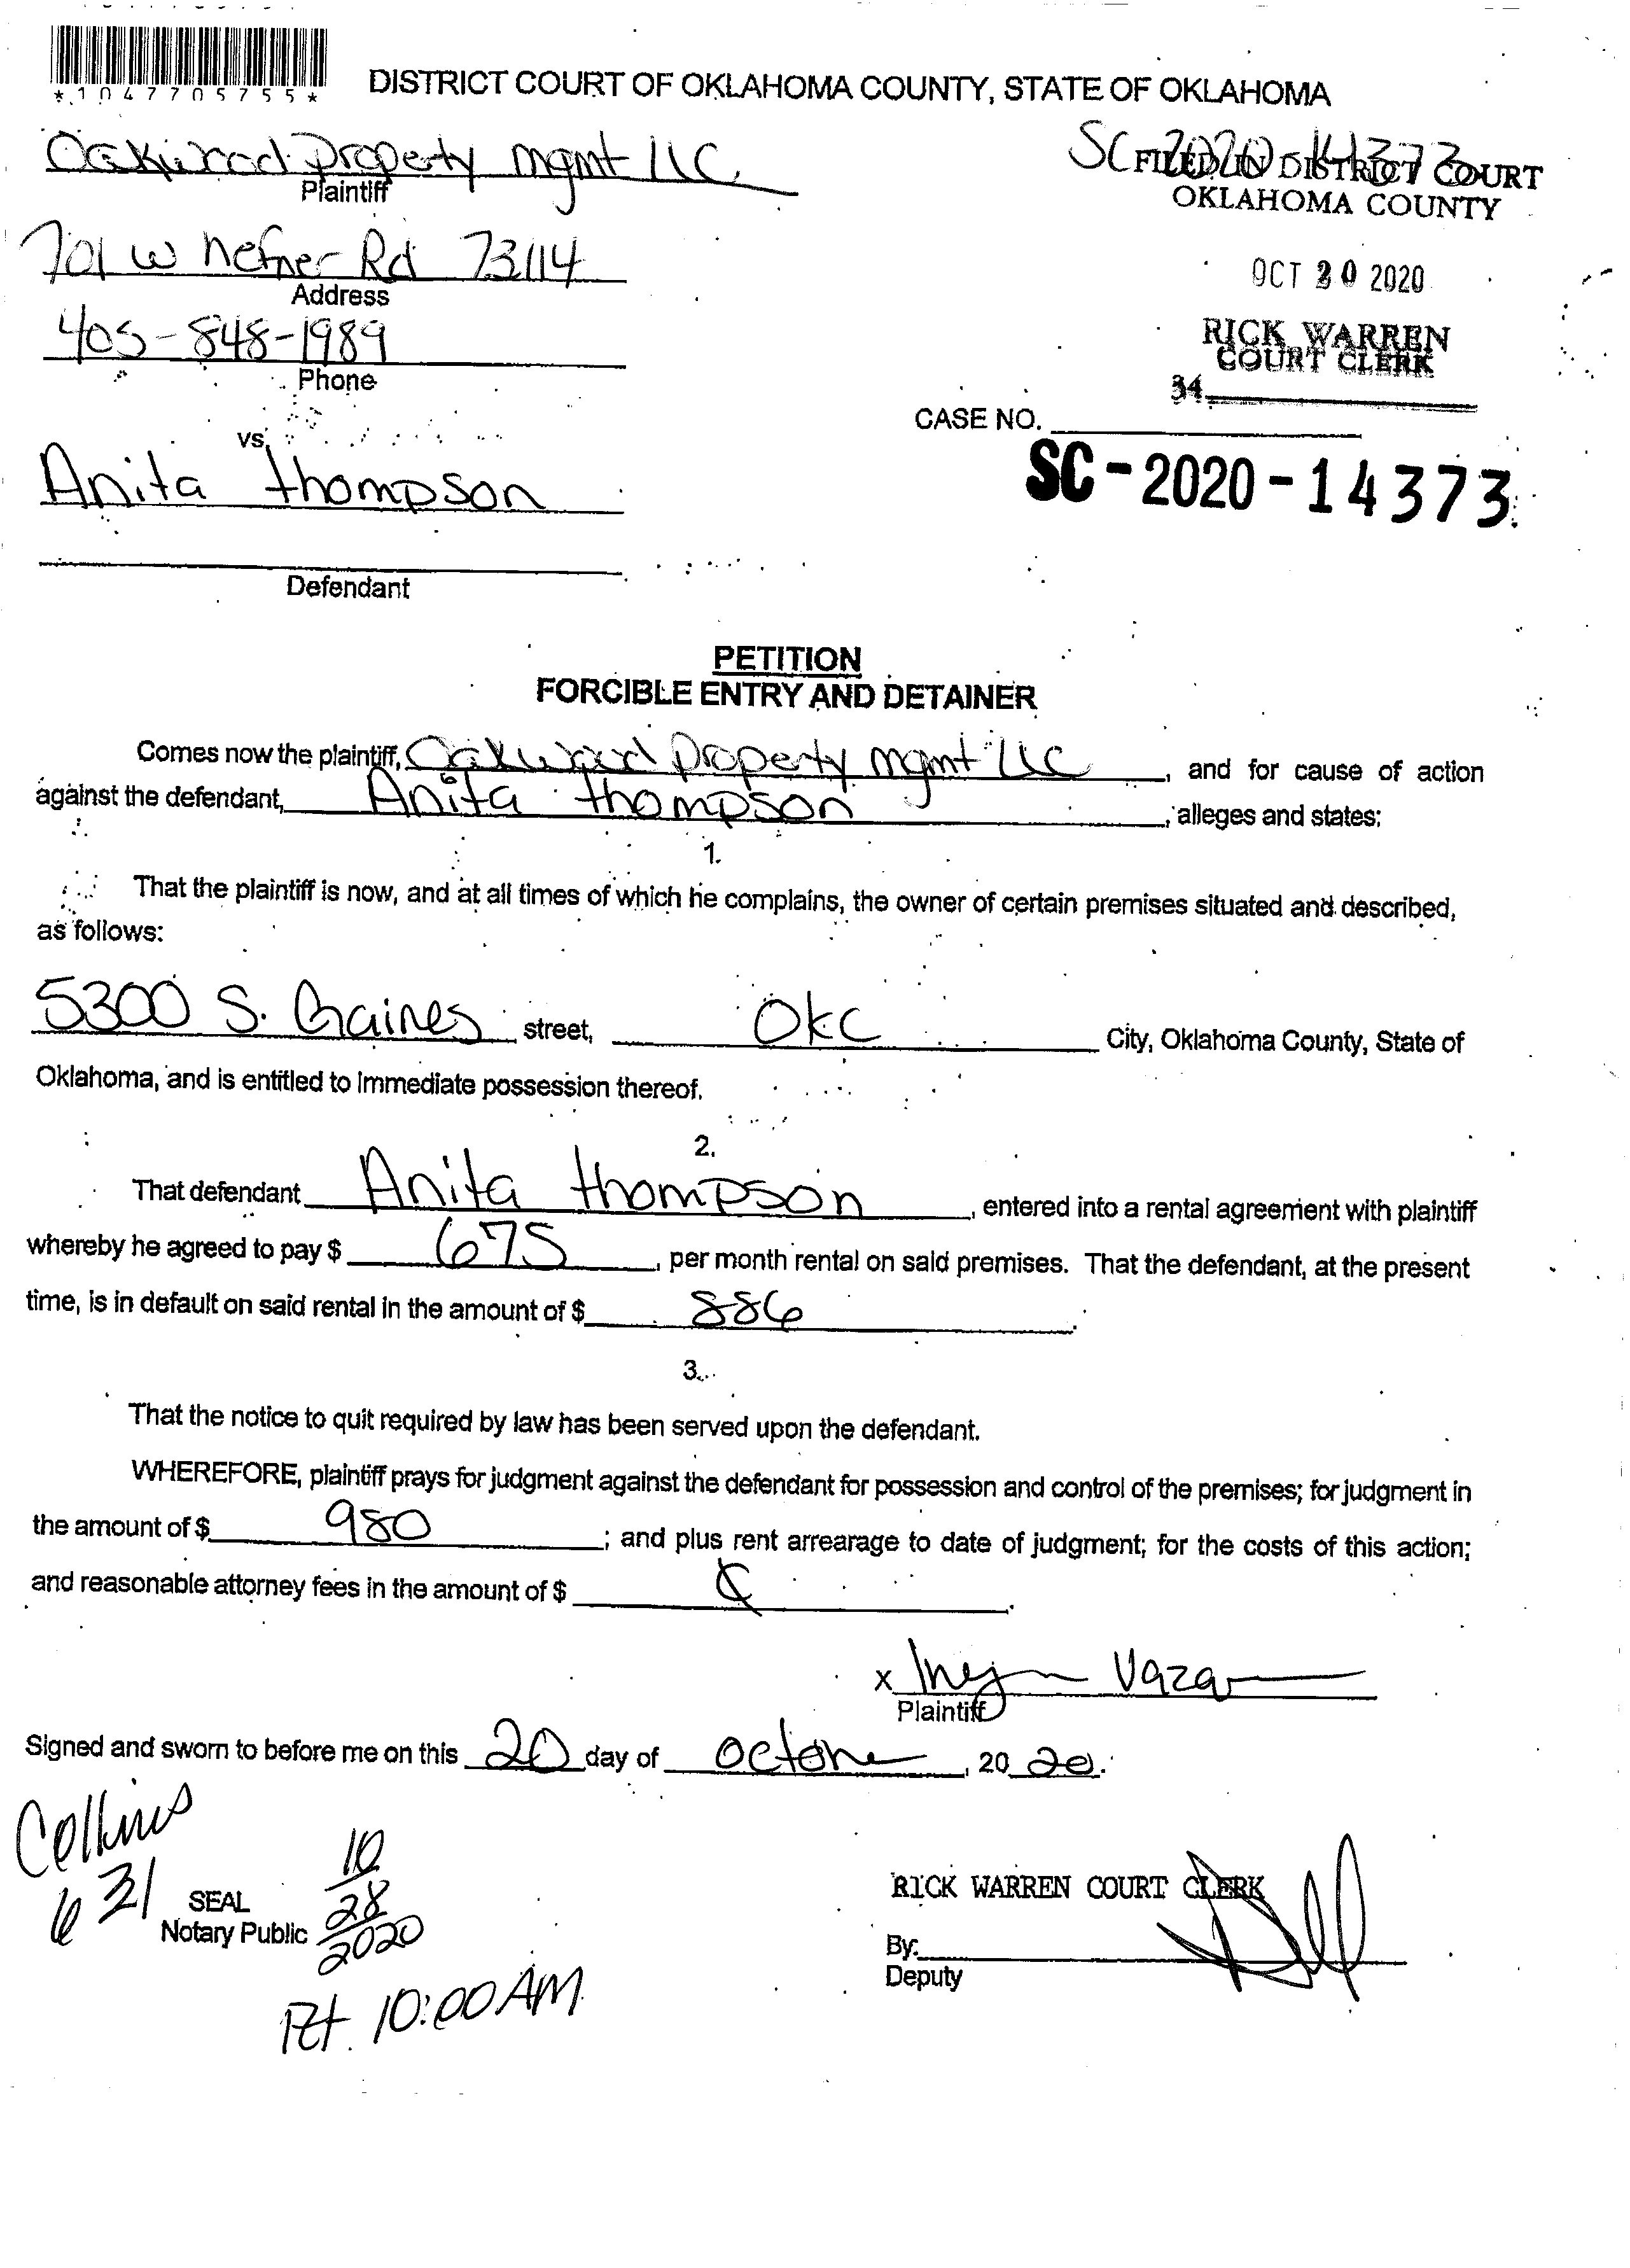 *1047705755*
DISTRICT COURT OF OKLAHOMA COUNTY, STATE OF OKLAHOMA
Oakwood Property mgmt LLC
Plaintiff
SC-2020-14373
FILED IN DISTRICT COURT
OKLAHOMA COUNTY
701 W Hefner Rd 73114
Address
OCT 20 2020
405-848-1989
Phone
RICK WARREN
COURT CLERK
34
CASE NO.
vs.
Anita thompson
SC-2020-14373
Defendant
PETITION
FORCIBLE ENTRY AND DETAINER
Comes now the plaintiff, Oakwood Property mgmt LLC, and for cause of action
against the defendant, Anita thompson, alleges and states:
1.
That the plaintiff is now, and at all times of which he complains, the owner of certain premises situated and described,
as follows:
5300 S. Gaines street, OKC City, Oklahoma County, State of
Oklahoma, and is entitled to immediate possession thereof.
2.
That defendant Anita thompson, entered into a rental agreement with plaintiff
whereby he agreed to pay $ 675, per month rental on said premises. That the defendant, at the present
time, is in default on said rental in the amount of $ 886.
3.
That the notice to quit required by law has been served upon the defendant.
WHEREFORE, plaintiff prays for judgment against the defendant for possession and control of the premises; for judgment in
the amount of $ 980; and plus rent arrearage to date of judgment; for the costs of this action;
and reasonable attorney fees in the amount of $
x
Plaintiff
Signed and sworn to before me on this 20 day of october, 20 20.
Collins
631
SEAL
Notary Public
10
28
2020
At 10:00 AM
RICK WARREN COURT CLERK
By:
Deputy